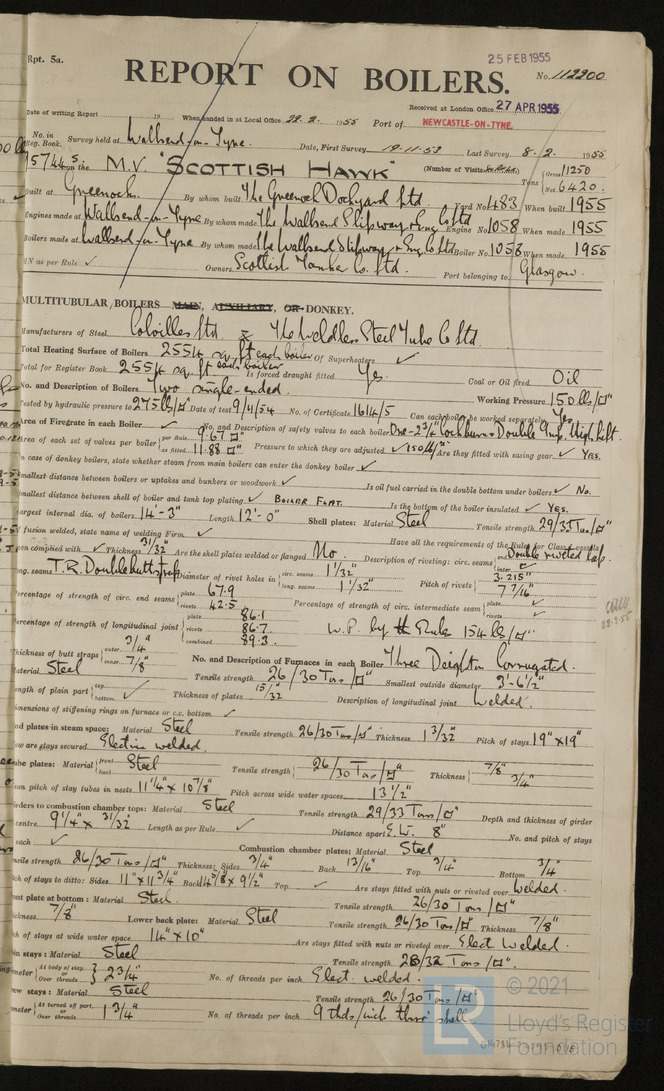 Rpt. 5a.
25 FEB 1955
REPORT ON BOILERS.
No. 112200
Received at London Office 27 APR 1955
Date of writing Report 19 When handed in at Local Office 22. 2. 1955 Port of NEWCASTLE-ON-TYNE.
No. in Reg. Book. Survey held at Wallsend-on-Tyne. Date, First Survey 19-11-53 Last Survey 8. 2. 1955
15744 on the M.V. "SCOTTISH HAWK" (Number of Visits) Tons Gross 11250 Net 6420.
Built at Greenock. By whom built The Greenock Dockyard Ltd. Yard No. 483 When built 1955
Engines made at Wallsend-on-Tyne By whom made The Wallsend Slipway & Eng. Co Ltd Engine No. 1058 When made 1955
Boilers made at Wallsend-on-Tyne By whom made The Wallsend Slipway & Eng. Co Ltd Boiler No. 1058 When made 1955
MN as per Rule ✓ Owners Scottish Tanker Co. Ltd. Port belonging to Glasgow.
MULTITUBULAR BOILERS MAIN, AUXILIARY, OR DONKEY.
Manufacturers of Steel Colvilles Ltd & The Weldless Steel Tube Co Ltd.
Total Heating Surface of Boilers 2554 sq. ft each boiler Of Superheaters ✓
Total for Register Book 2554 sq. ft. each boiler Is forced draught fitted. Yes. Coal or Oil fired Oil
No. and Description of Boilers Two single-ended. Working Pressure 150 lbs/□"
Tested by hydraulic pressure to 275 lbs/□" Date of test 9/4/54 No. of Certificate 1614/5 Can each boiler be worked separately Yes
Area of Firegrate in each Boiler ✓ No. and Description of safety valves to each boiler One - 2 3/4" Cockburn's Double Imp. High Lift.
Area of each set of valves per boiler per Rule 9.67 □" as fitted 11.88 □" Pressure to which they are adjusted ✓ 150 lb/□" Are they fitted with easing gear ✓ YES.
In case of donkey boilers, state whether steam from main boilers can enter the donkey boiler ✓
Smallest distance between boilers or uptakes and bunkers or woodwork ✓ Is oil fuel carried in the double bottom under boilers ✓ No.
Smallest distance between shell of boiler and tank top plating ✓ BOILER FLAT. Is the bottom of the boiler insulated ✓ YES.
Largest internal dia. of boilers 14'-3" Length 12'-0" Shell plates: Material Steel Tensile strength 29/33 Tons/□"
If fusion welded, state name of welding Firm ✓ Have all the requirements of the Rules for Class I vessels
been complied with ✓ Thickness 31/32" Are the shell plates welded or flanged No. Description of riveting: circ. seams Double riveted lap. inter. ✓
long. seams T.R. Double butt straps Diameter of rivet holes in circ. seams 1 1/32" long. seams 1 1/32" Pitch of rivets 3.215" 7 7/16"
Percentage of strength of circ. end seams plate 67.9 rivets 42.5 Percentage of strength of circ. intermediate seam plate ✓ rivets ✓
Percentage of strength of longitudinal joint plate 86.1 rivets 86.7 combined 89.3 W.P. by the Rule 154 lbs/□"
Thickness of butt straps outer 3/4" inner 7/8" No. and Description of Furnaces in each Boiler Three Deighton Corrugated.
Material Steel Tensile strength 26/30 Tons/□" Smallest outside diameter 3'-6 1/2"
Length of plain part top bottom ✓ Thickness of plates 15/32" Description of longitudinal joint Welded.
Dimensions of stiffening rings on furnace or c.c. bottom ✓
End plates in steam space: Material Steel Tensile strength 26/30 Tons/□" Thickness 1 3/32" Pitch of stays 19" x 19"
How are stays secured Electric welded.
Tube plates: Material front back Steel Tensile strength 26/30 Tons/□" Thickness 7/8" 3/4"
Mean pitch of stay tubes in nests 11 1/4" x 10 7/8" Pitch across wide water spaces 13 1/2"
Girders to combustion chamber tops: Material Steel Tensile strength 29/33 Tons/□" Depth and thickness of girder
at centre 9 1/4" x 31/32" Length as per Rule ✓ Distance apart E.W. 8" No. and pitch of stays
in each ✓ Combustion chamber plates: Material Steel
Tensile strength 26/30 Tons/□" Thickness: Sides 3/4" Back 13/16" Top 3/4" Bottom 3/4"
Pitch of stays to ditto: Sides 11" x 11 3/4" Back 14 5/8 x 9 1/2" Top ✓ Are stays fitted with nuts or riveted over Welded.
Front plate at bottom: Material Steel. Tensile strength 26/30 Tons/□"
Thickness 7/8" Lower back plate: Material Steel Tensile strength 26/30 Tons/□" Thickness 7/8"
Pitch of stays at wide water space 14" x 10" Are stays fitted with nuts or riveted over Elect. Welded.
Main stays: Material Steel Tensile strength 28/32 Tons/□".
Diameter At body of stay or Over threads 2 3/4" No. of threads per inch Elect. welded.
Screw stays: Material Steel Tensile strength 26/30 Tons/□"
Diameter At turned off part, or Over threads 1 3/4" No. of threads per inch 9 thds/inch thro' shell
© 2021
Lloyd's Register
Foundation